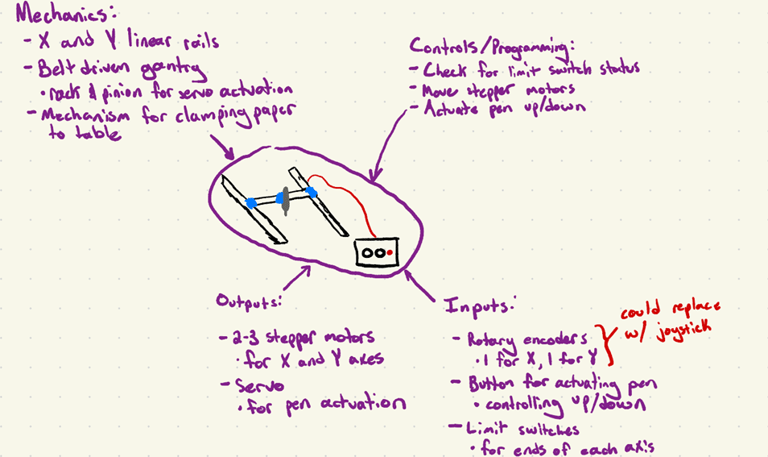 Mechanics:
- X and Y linear rails
- Belt driven gantry
• rack & pinion for servo actuation
- Mechanism for clamping paper
to table
Controls/Programming:
- Check for limit switch status
- Move stepper motors
- Actuate pen up/down
Outputs:
- 2-3 stepper motors
• for X and Y axes
- Servo
• for pen actuation
Inputs:
- Rotary encoders
• 1 for X, 1 for Y
- Button for actuating pen
• controlling up/down
- Limit switches
• for ends of each axis
could replace
w/ joystick